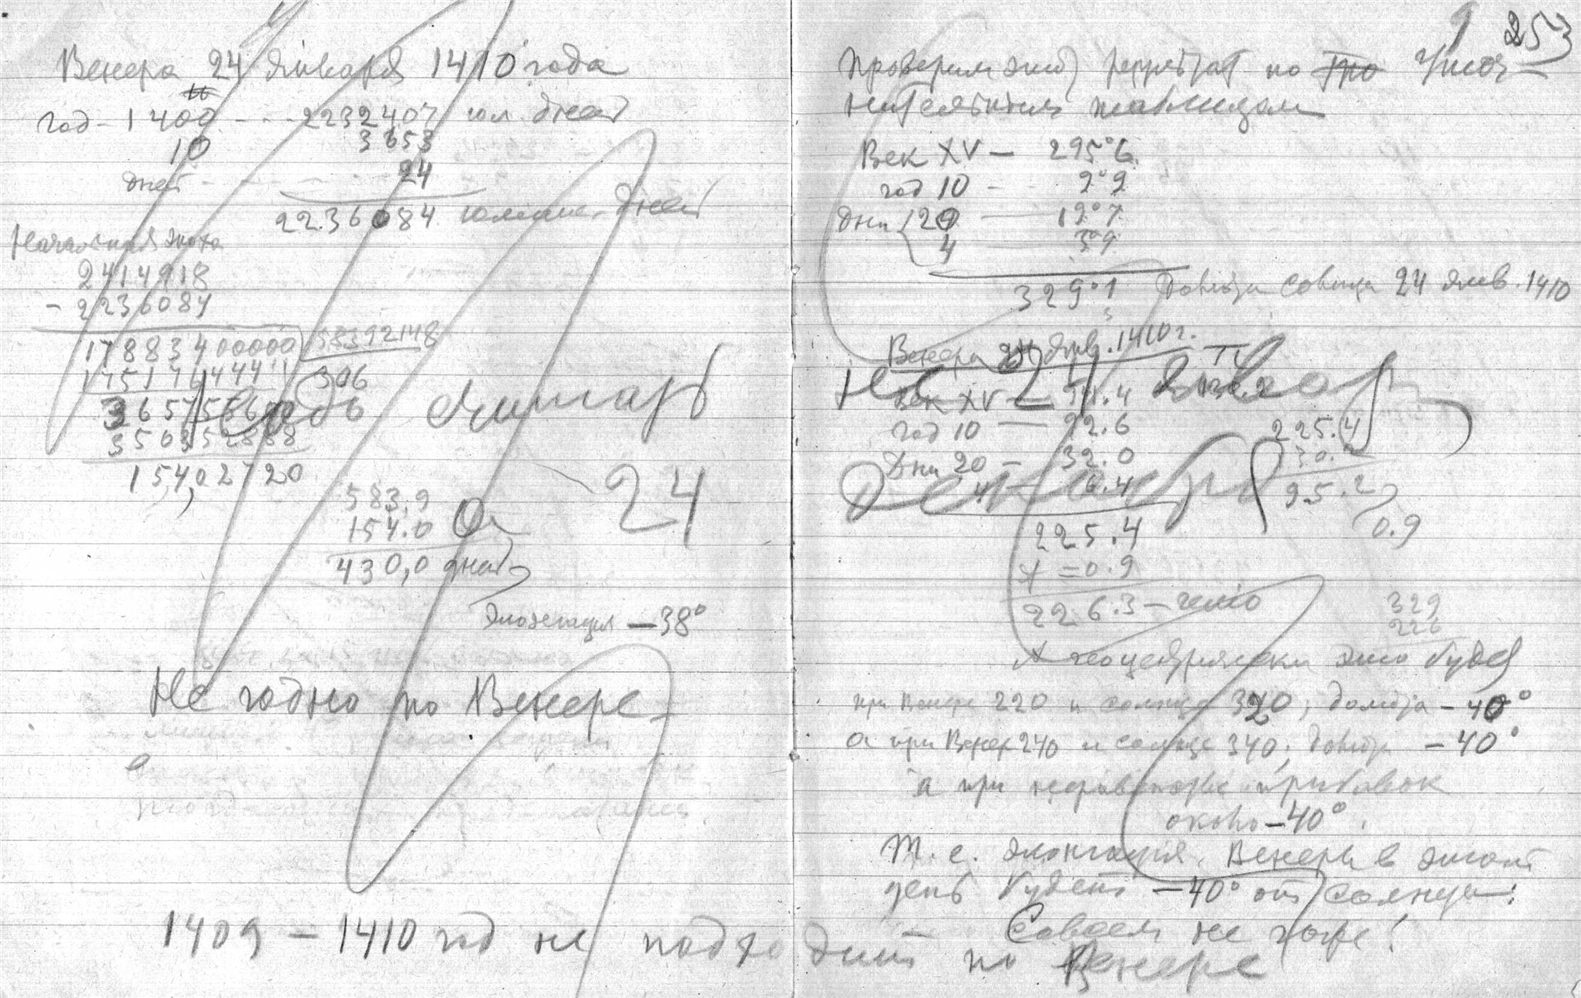 Венера 24 января 1410 года
год - 1400 - - - 2232407 юл. дней
10 3653
дней - - - 24
2236084 юлианс. дней
Начальная эпоха
2414918
- 2236084
17883400000 58392148
17517644411 306
365755600
350352888
15402720
583.9
154.0
430,0 дней
Элонгация - 38°
Ведь Октябрь
а 24
Не годно по Венере
253
Проверим этот результат по
таблицам
Век XV — 295°6
год 10 - 9°9
Дни 20 — 19°7
4 3°9
329°1 Долгота солнца 24 янв. 1410
Венера 24 янв. 1410 г. π
Не 24 Января
Век XV — 94.4
год 10 — 92.6
Дни 20 — 32.0
4 — 6.4
Декабря
225.4
30.
95.2
0.9
225.4
+ = 0.9
226.3 - гелио
329
226
А геоцентрически это будет
при Венере 220 и солнце 320, долгота - 40°
а при Венере 240 и солнце 340, долгота - 40°
а при
около - 40°.
Т. е. элонгация Венеры в этот
день будет - 40° от солнца.
Совсем не гоже!
1409 - 1410 год не подходит по Венере